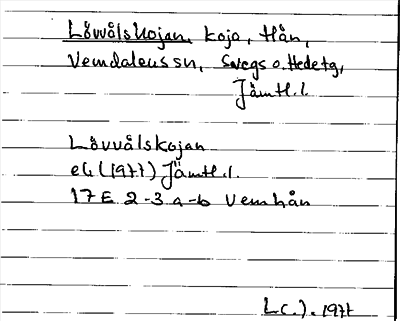 Lövvålskojan, koja, Hån,
Vemdalens sn, Svegs o. Hede tg,
Jämtl. l.
Lövvålskojan
ek (1977) Jämtl. l.
17 E 2-3 a-b Vemhån
1977